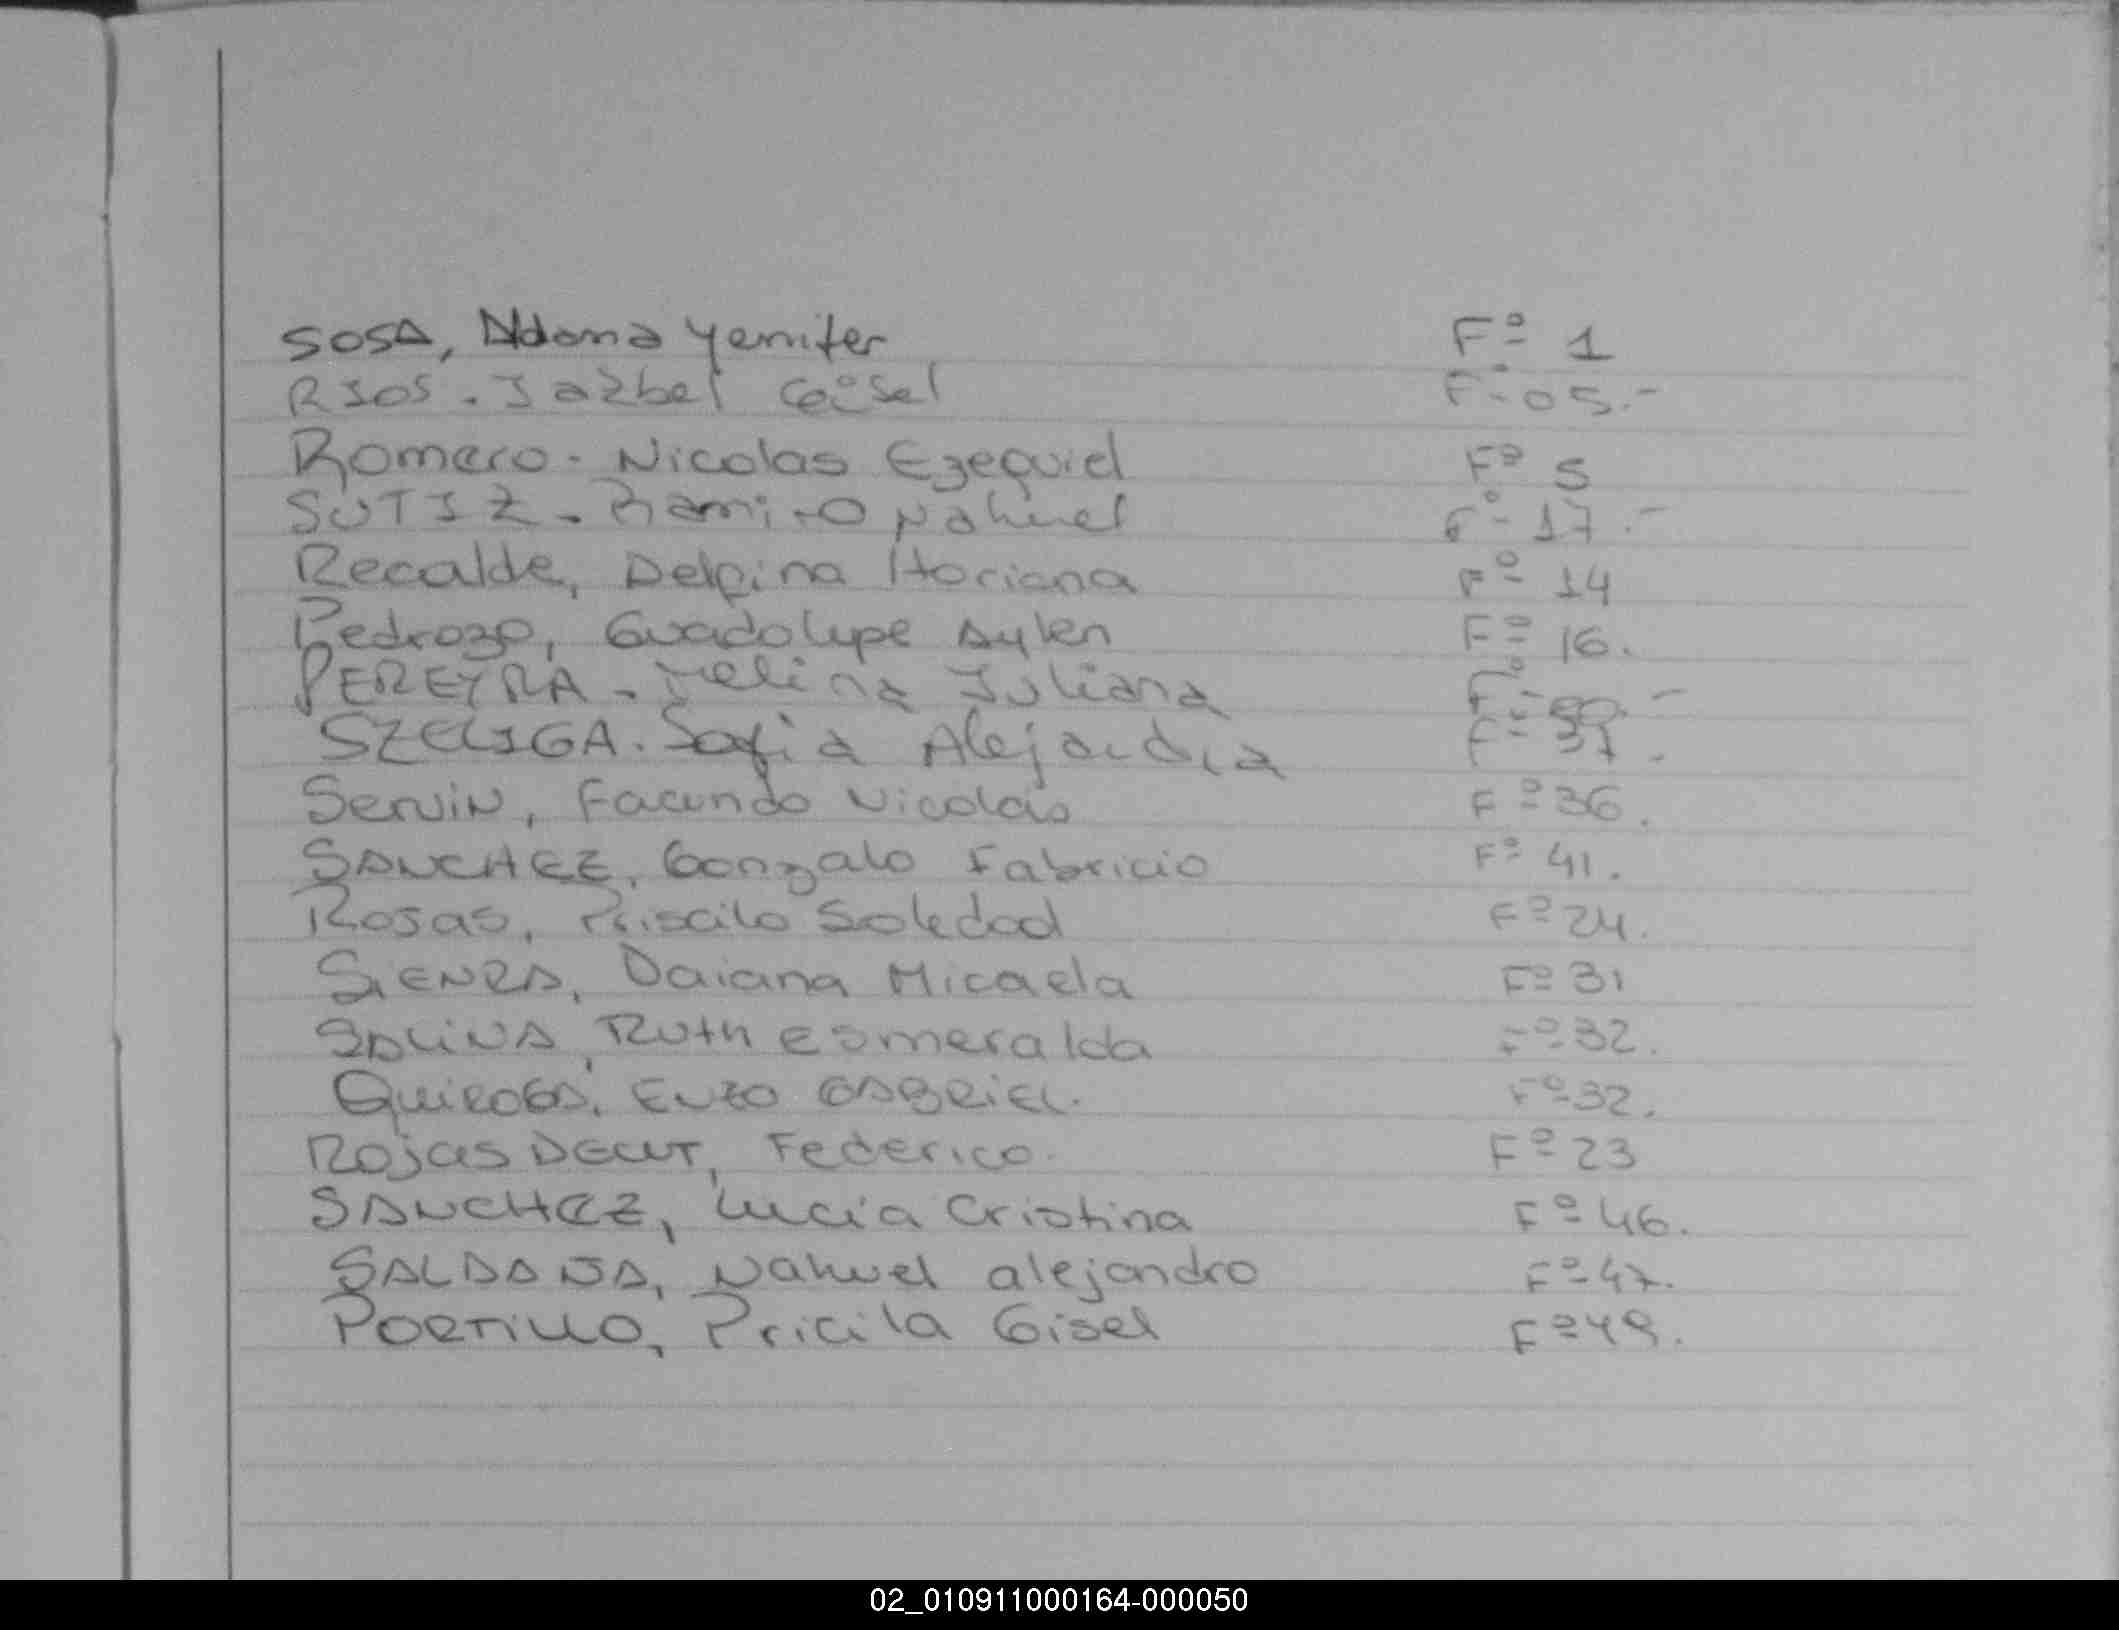 SOSA, Aldana Yemifer Fº 1
RIOS. Jazbel Geisel Fº 05.-
Romero. Nicolas Ezequiel Fº 5
SOTIZ. Ramiro Nahuel Fº 17.-
Recalde, Delpina Floriana Fº 14
Pedrozo, Guadalupe Aylen Fº 16.
PEREYRA. Juliana Fº
SZELIGA. Sofia Alejandra Fº 37.
Servin, Facundo Nicolás Fº 36.
SANCHEZ, Gonzalo Fabricio Fº 41.
Rosas, Priscila Soledad Fº 24.
SiENRA, Daiana Micaela Fº 31
SALINA, Ruth esmeralda Fº 32.
QuiROGA, ENZO GABRIEL. Fº 32.
Rojas DECUT, Federico. Fº 23
SANCHEZ, Lucía Cristina Fº 46.
SALDANJA, Nahuel alejandro Fº 47.
PORTILLO, Pricila Gisel Fº 49.
02_010911000164-000050